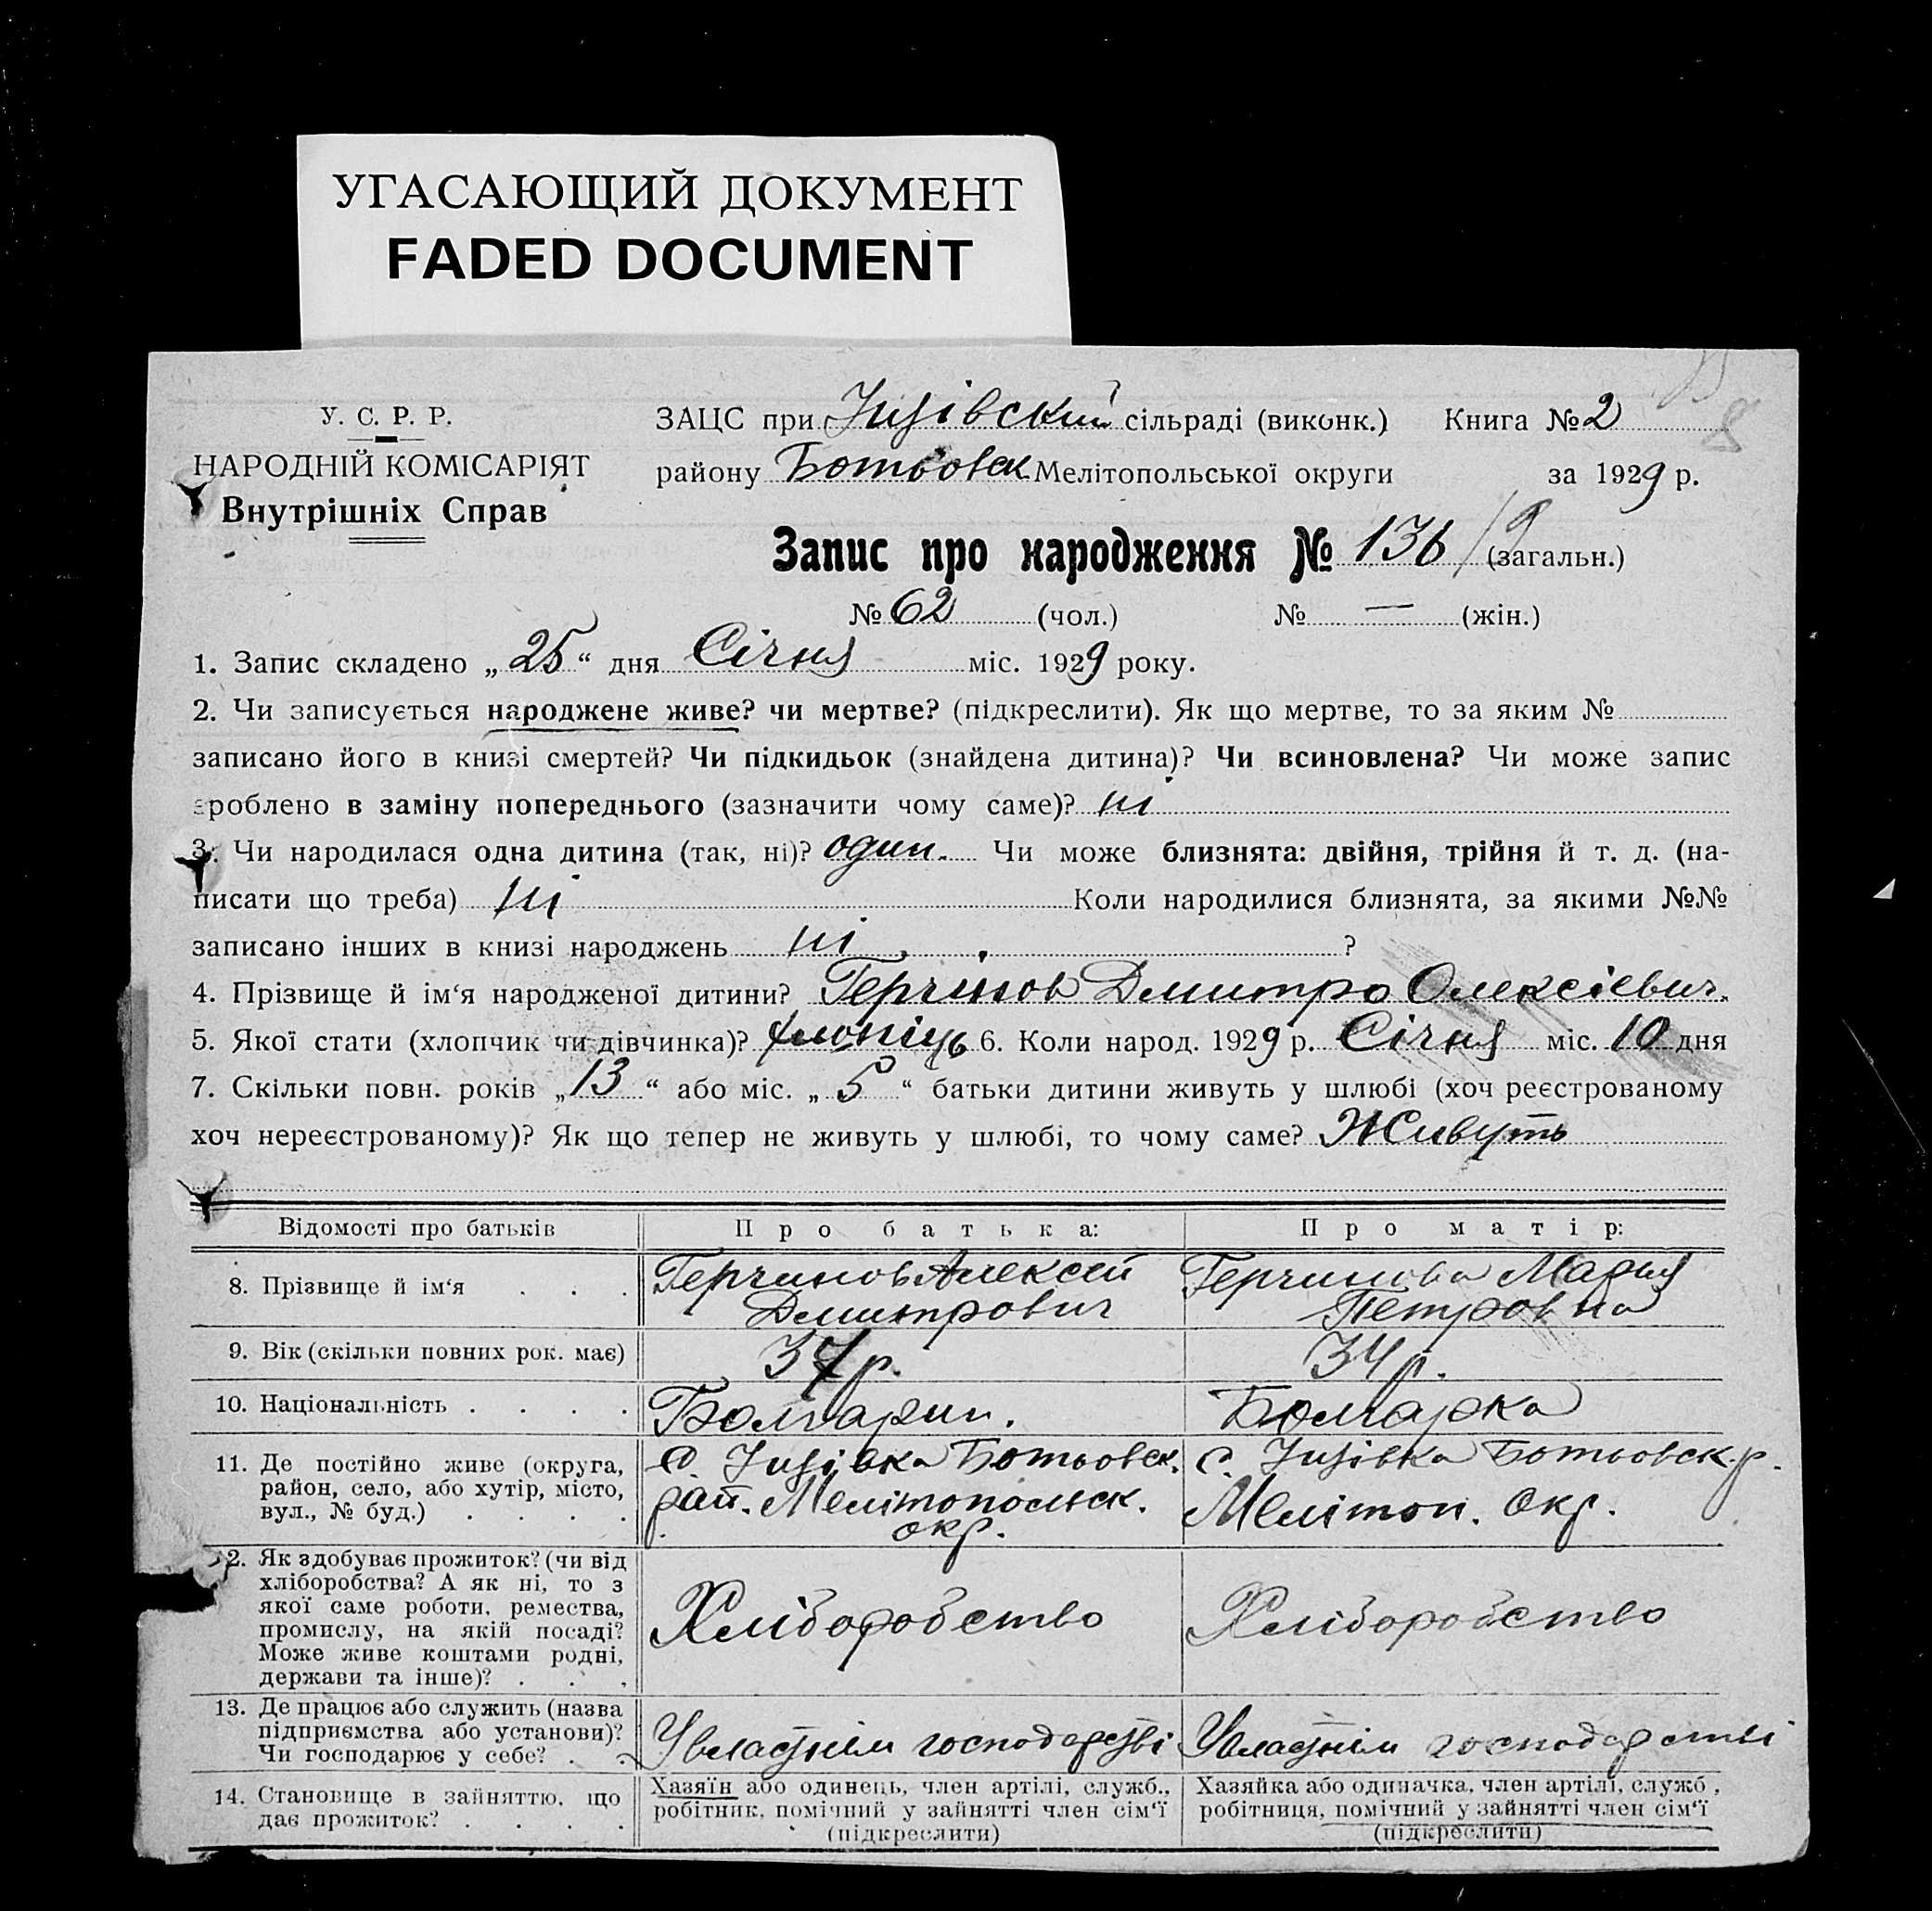 УГАСАЮЩИЙ ДОКУМЕНТ
FADED DOCUMENT
У. С. Р. Р.
НАРОДНІЙ КОМІСАРІЯТ
Внутрішніх Справ
ЗАЦС при Інзівский сільраді (виконк.) Книга № 2
району Ботьовск Мелітопольської округи за 1929 р.
Запис про народження № 136 /9 (загальн.)
№ 62 (чол.) № — (жін.)
1. Запис складено „ 25 “ дня Січня міс. 1929 року.
2. Чи записується народжене живе? чи мертве? (підкреслити). Як що мертве, то за яким №
записано його в книзі смертей? Чи підкидьок (знайдена дитина)? Чи всиновлена? Чи може запис
зроблено в заміну попереднього (зазначити чому саме)? ні
3. Чи народилася одна дитина (так, ні)? один. Чи може близнята: двійня, трійня й т. д. (на-
писати що треба) ні Коли народилися близнята, за якими №№
записано інших в книзі народжень ні ?
4. Прізвище й ім‘я народженої дитини? Герчінов Дмитро Олексієвич.
5. Якої стати (хлопчик чи дівчинка)? хлопіць 6. Коли народ. 1929 р. Січня міс. 10 дня
7. Скільки повн. років „ 13 “ або міс. „ 5 “ батьки дитини живуть у шлюбі (хоч реєстрованому
хоч нереєстрованому)? Як що тепер не живуть у шлюбі, то чому саме? Живуть
Відомості про батьків Про батька: Про матір:
8. Прізвище й ім‘я . . . Герчинов Алексей Герчинова Марья
Дмитрович Петровна
9. Вік (скільки повних рок. має) 37 р. 34 р.
10. Національність . . . . Болгарин. Болгарка
11. Де постійно живе (округа, с. Інзівка Ботьовск. с. Інзівка Ботьовск. р.
район, село, або хутір, місто, рай. Мелітопольск. Мелітоп. Окр.
вул., № буд.) . . . . окр.
12. Як здобуває прожиток? (чи від
хліборобства? А як ні, то з
якої саме роботи, ремества, Хліборобство Хліборобство
промислу, на якій посаді?
Може живе коштами родні,
держави та інше)? . . .
13. Де працює або служить (назва
підприємства або установи)? У власнім господарстві У власнім господарстві
Чи господарює у себе? . .
14. Становище в зайняттю, що Хазяїн або одинець, член артілі, служб., Хазяйка або одиначка, член артілі, служб.,
дає прожиток? . . . . робітник, помічний у зайнятті член сім‘ї робітниця, помічний у зайнятті член сім‘ї
(підкреслити) (підкреслити)